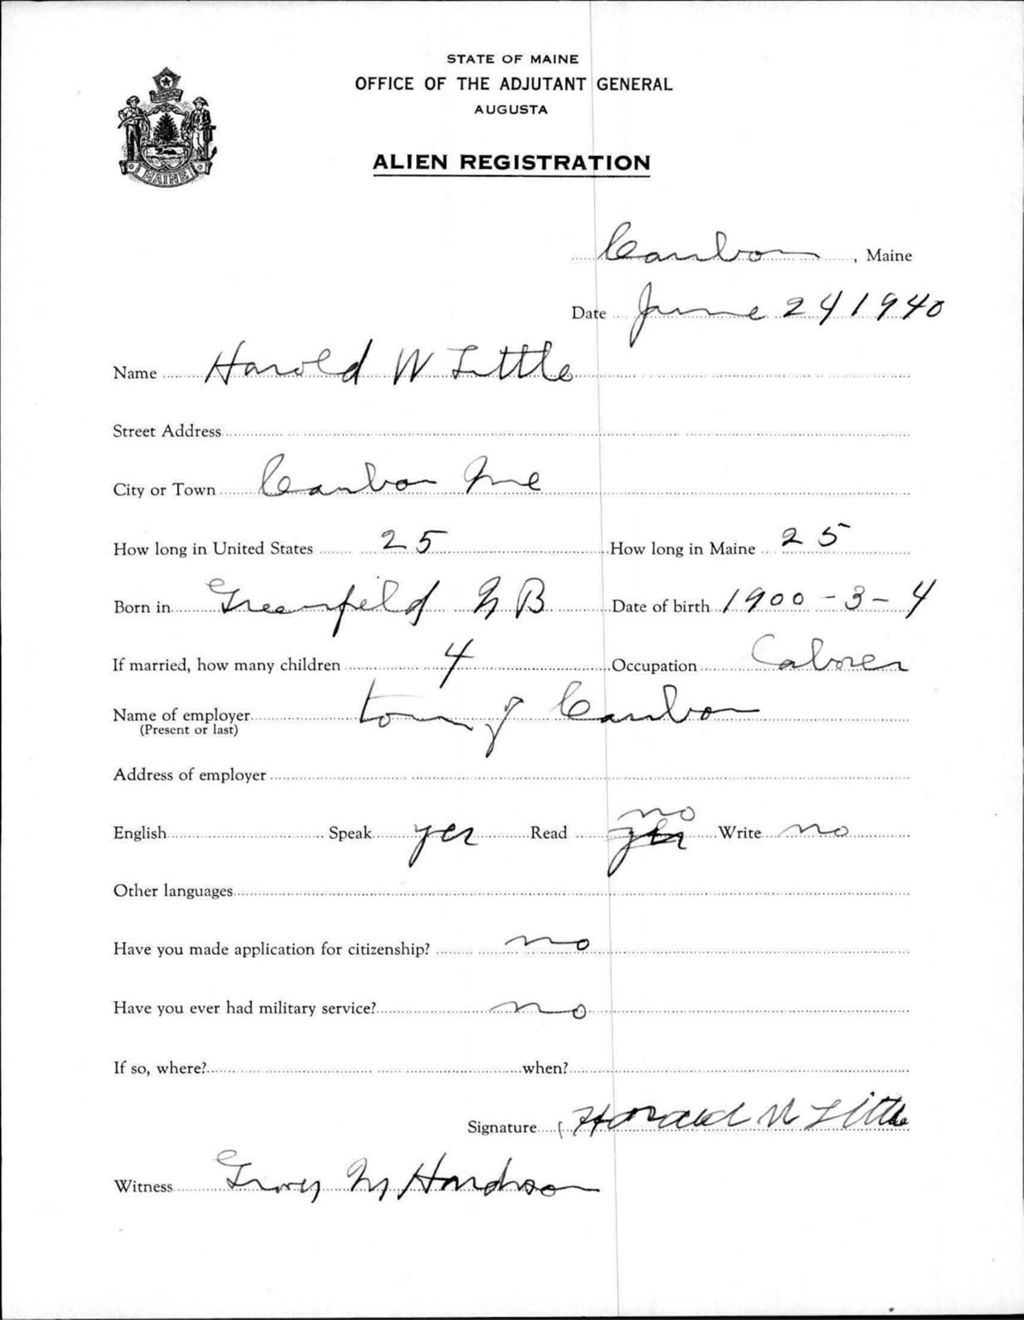 STATE OF MAINE
OFFICE OF THE ADJUTANT GENERAL
AUGUSTA
ALIEN REGISTRATION
MAINE
Caribou, Maine
Date June 24 1940
Name Harold W Little
Street Address
City or Town Caribou Me
How long in United States 25 How long in Maine 25
Born in Greenfield N B Date of birth 1900-3-4
If married, how many children 4 Occupation Laborer
Name of employer town of Caribou
(Present or last)
Address of employer
no
English Speak yes Read yes Write no
Other languages
Have you made application for citizenship? no
Have you ever had military service? no
If so, where? when?
Signature Harold W Little
Witness M Hardison